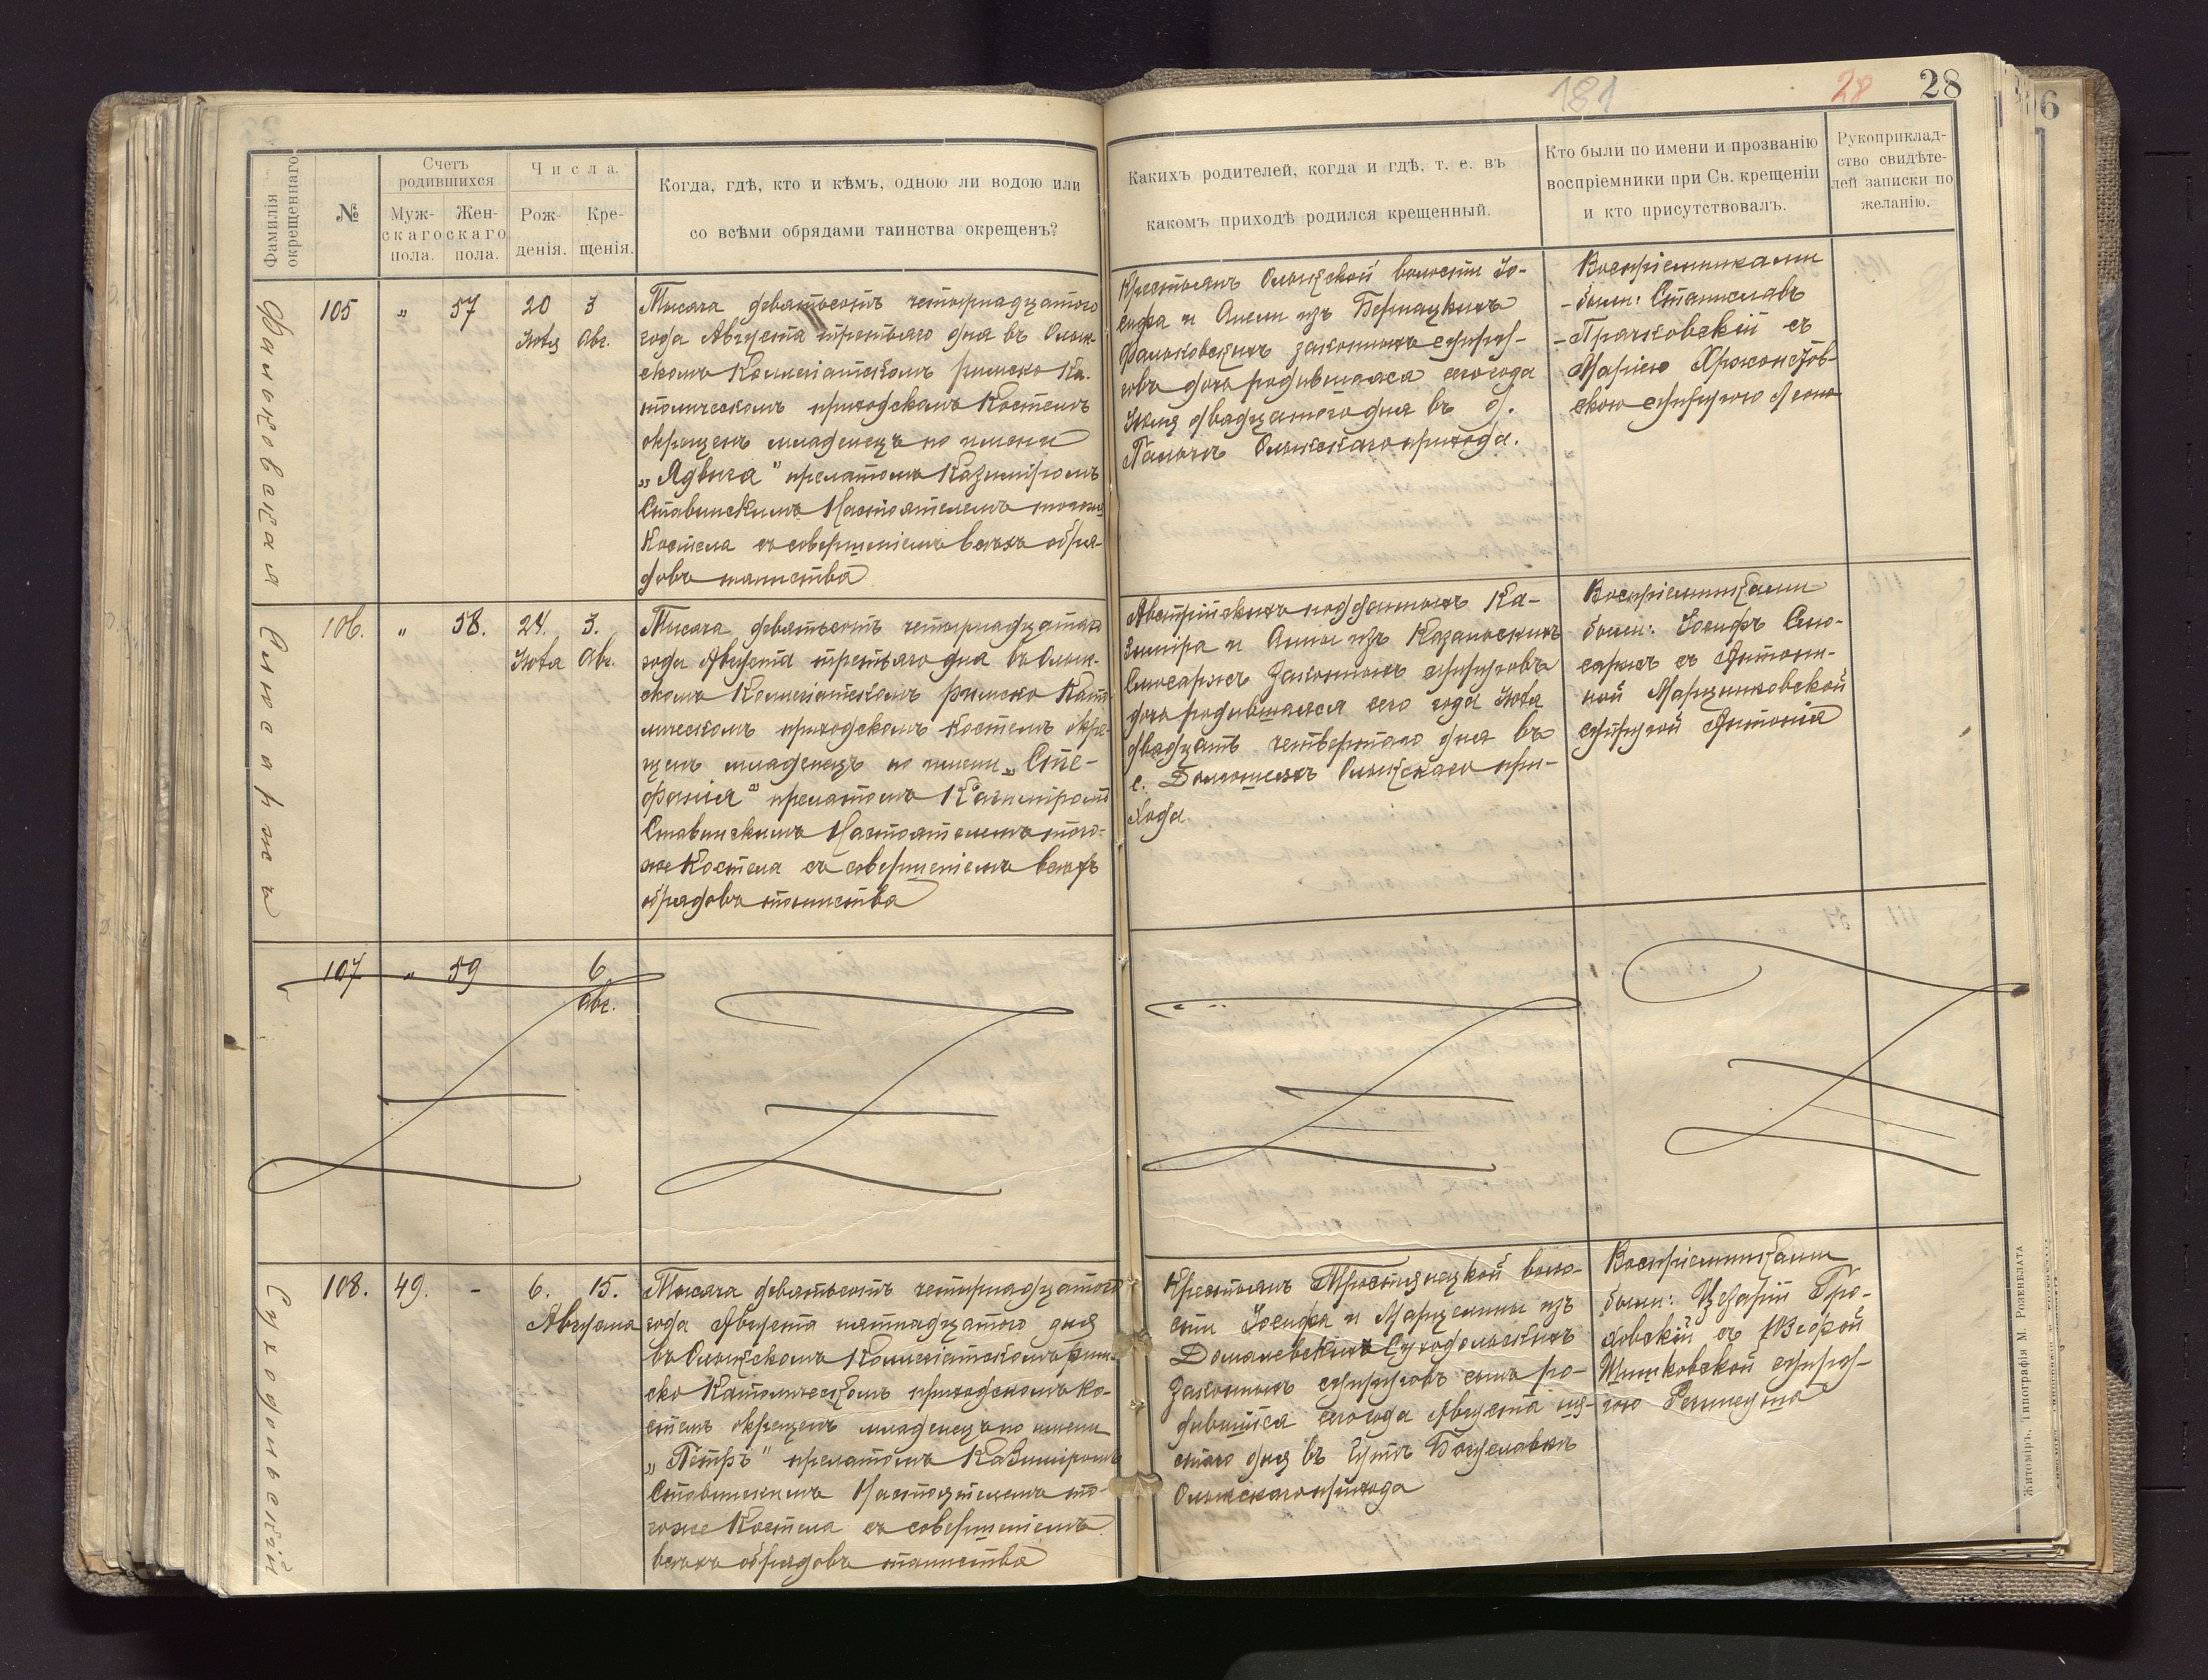 181
28
28
Фамилія
окрещеннаго
№
Счетъ
родившихся
Муж-
скаго
пола.
Жен-
скаго
пола.
Числа.
Рож-
денія.
Кре-
щенія.
Когда, гдѣ, кто и кѣмъ, одною ли водою или
со всѣми обрядами таинства окрещенъ?
Каких родителей, когда и гдѣ, т. е. въ
какомъ приходѣ родился крещенный.
Кто были по имени и прозванію
воспріемники при Св. крещеніи
и кто присутствовалъ.
Рукоприклад-
ство свидѣте-
лей записки по
желанію.
Фальковская
105
„
57
20
Юля
3
Авг.
Тысяча девятьсотъ четырнадцатого
года Августа третьяго дня въ Олык-
скомъ Коллегіатскомъ римско Ка-
толическомъ приходскомъ Костелѣ
окрещенъ младенецъ по имени
„Ядвига" прелатомъ Казиміромъ
Ставинскимъ Настоятелемъ тогоже
Костела съ совершеніемъ всѣхъ обря-
довъ таинства
Крестьянъ Олыкской волости Іо-
сифа и Анели изъ
Фальковскихъ законныхъ супру-
говъ дочь родившаяся сего года
Юля двадцатого дня въ д.
Олыкскаго прихода.
Воспріемниками
были: Станиславъ
съ
Маріею
скою супругою Леона
Слюсаржъ
106.
„
58.
24.
Юля
3.
Авг.
Тысяча девятьсотъ четырнадцатаго
года Августа третьяго дня въ Олык-
скомъ Коллегіатскомъ римско Като-
лическомъ приходскомъ Костелѣ окре-
щенъ младенецъ по имени „Сте-
фанія" прелатомъ Казиміромъ
Ставинскимъ Настоятелемъ того-
же Костела съ совершеніемъ всѣхъ
обрядовъ таинства
Австрійскихъ подданныхъ Ка-
зиміра и Анны изъ
Слюсаржъ Законныхъ супруговъ
дочь родившаяся сего года Юля
двадцать четвертаго дня въ
с. Олыкскаго при-
хода
Воспріемниками
были: Іосифъ Слю-
саржъ съ Антони-
ной Марцинковской
супругой Антонія
107
„
59
6
Авг.
Суходольскій
108.
49.
-
6.
15.
Августа
Тысяча девятьсотъ четырнадцатого
года Августа пятнадцатого дня
въ Олыкскомъ Коллегіатскомъ рим-
ско Католическомъ приходскомъ Ко-
стелѣ окрещенъ младенецъ по имени
„Петръ" прелатомъ Казиміромъ
Ставинскимъ Настоятелемъ то-
гоже Костела съ совершеніемъ
всѣхъ обрядовъ таинства
Крестьянъ Тростянецкой воло-
сти Іосифа и Марцелины изъ
Суходольскихъ
Законныхъ супруговъ сынъ ро-
дившійся сего года Августа ше-
стаго дня въ
Олыкскаго прихода
Воспріемниками
были: Цезарій Гро-
ховскій съ Юзефой
супру-
гою
Житоміръ, типографія М. Розенблата